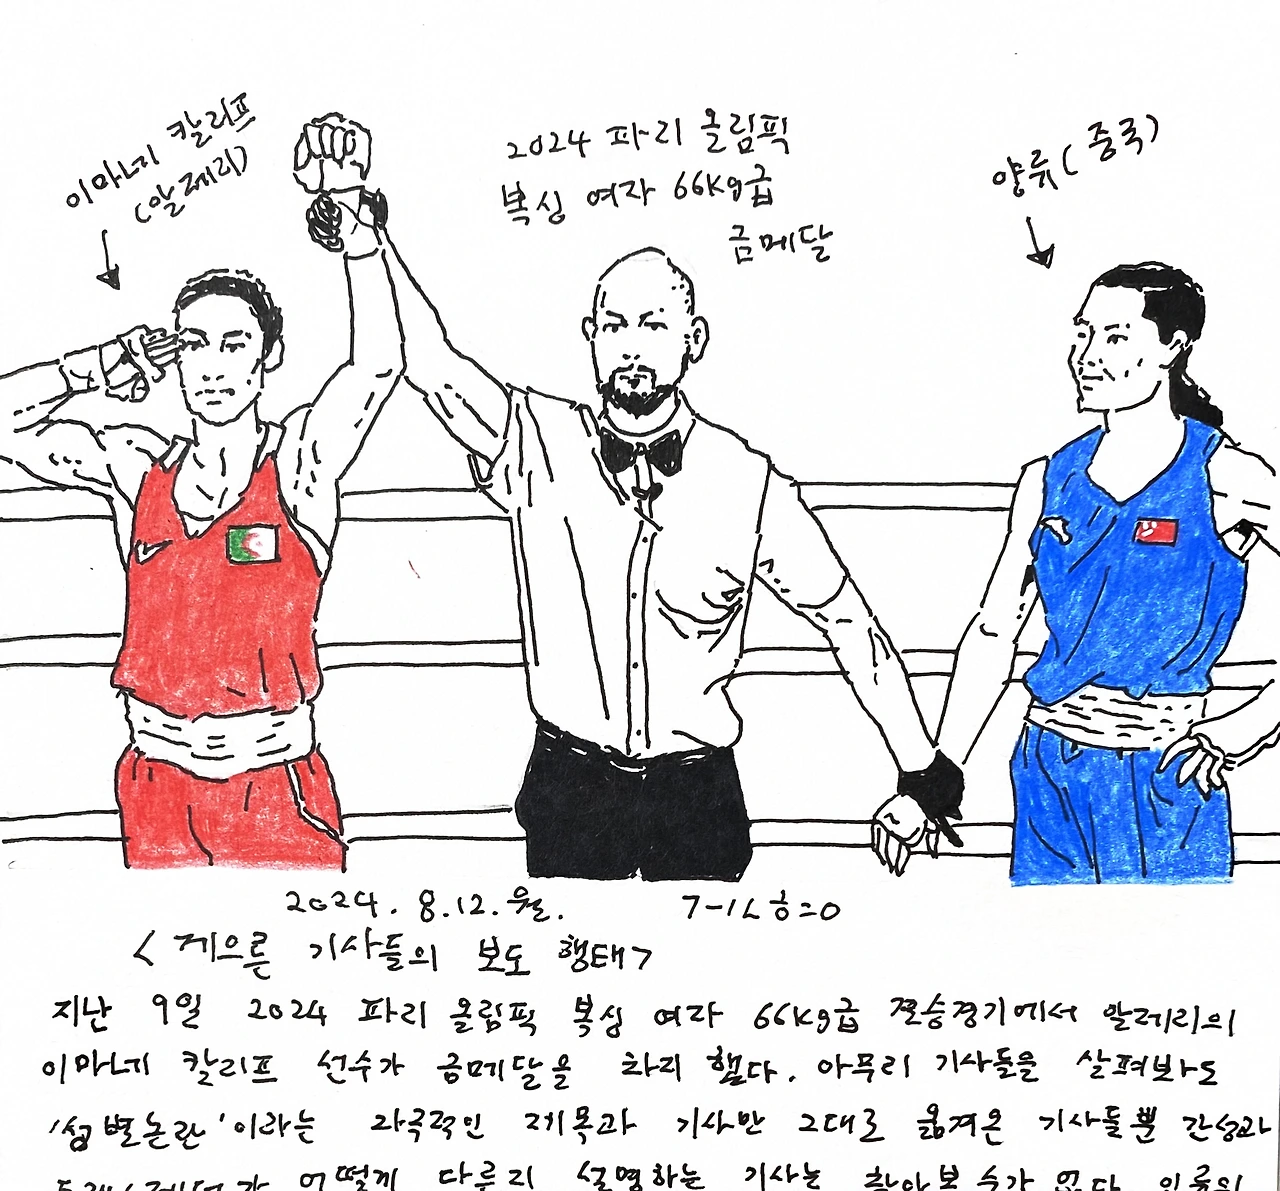 이마네 칼리프
(알제리)
2024 파리 올림픽
복싱 여자 66kg급
금메달
양류(중국)
2024. 8.12. 월.
<게으른 기사들의 보도 행태>
지난 9일 2024 파리 올림픽 복싱 여자 66kg급 결승경기에서 알제리의
이마네 칼리프 선수가 금메달을 차지 했다. 아무리 기사들을 살펴봐도
'성별논란'이라는 자극적인 제목과 기사만 그대로 옮겨온 기사들뿐 간성과
어떻게 다른지 설명하는 기사는 찾아볼 수가 없다. 인류의